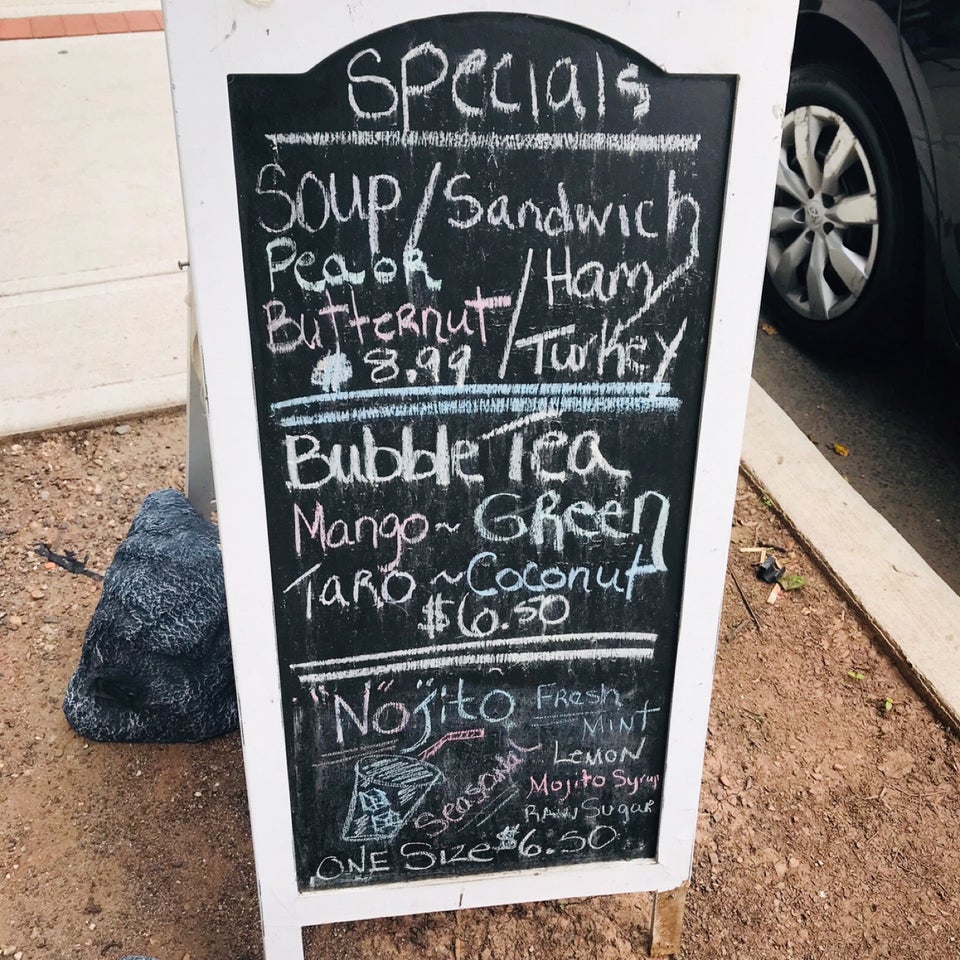 Specials
Soup / Sandwich
Pea or / Ham /
Butternut / Turkey
$ 8.99
Bubble Tea
Mango ~ Green
Taro ~ Coconut
$6.50
"No" jito
Fresh
Mint
Lemon
Mojito Syrup
Raw Sugar
ONE Size $6.50